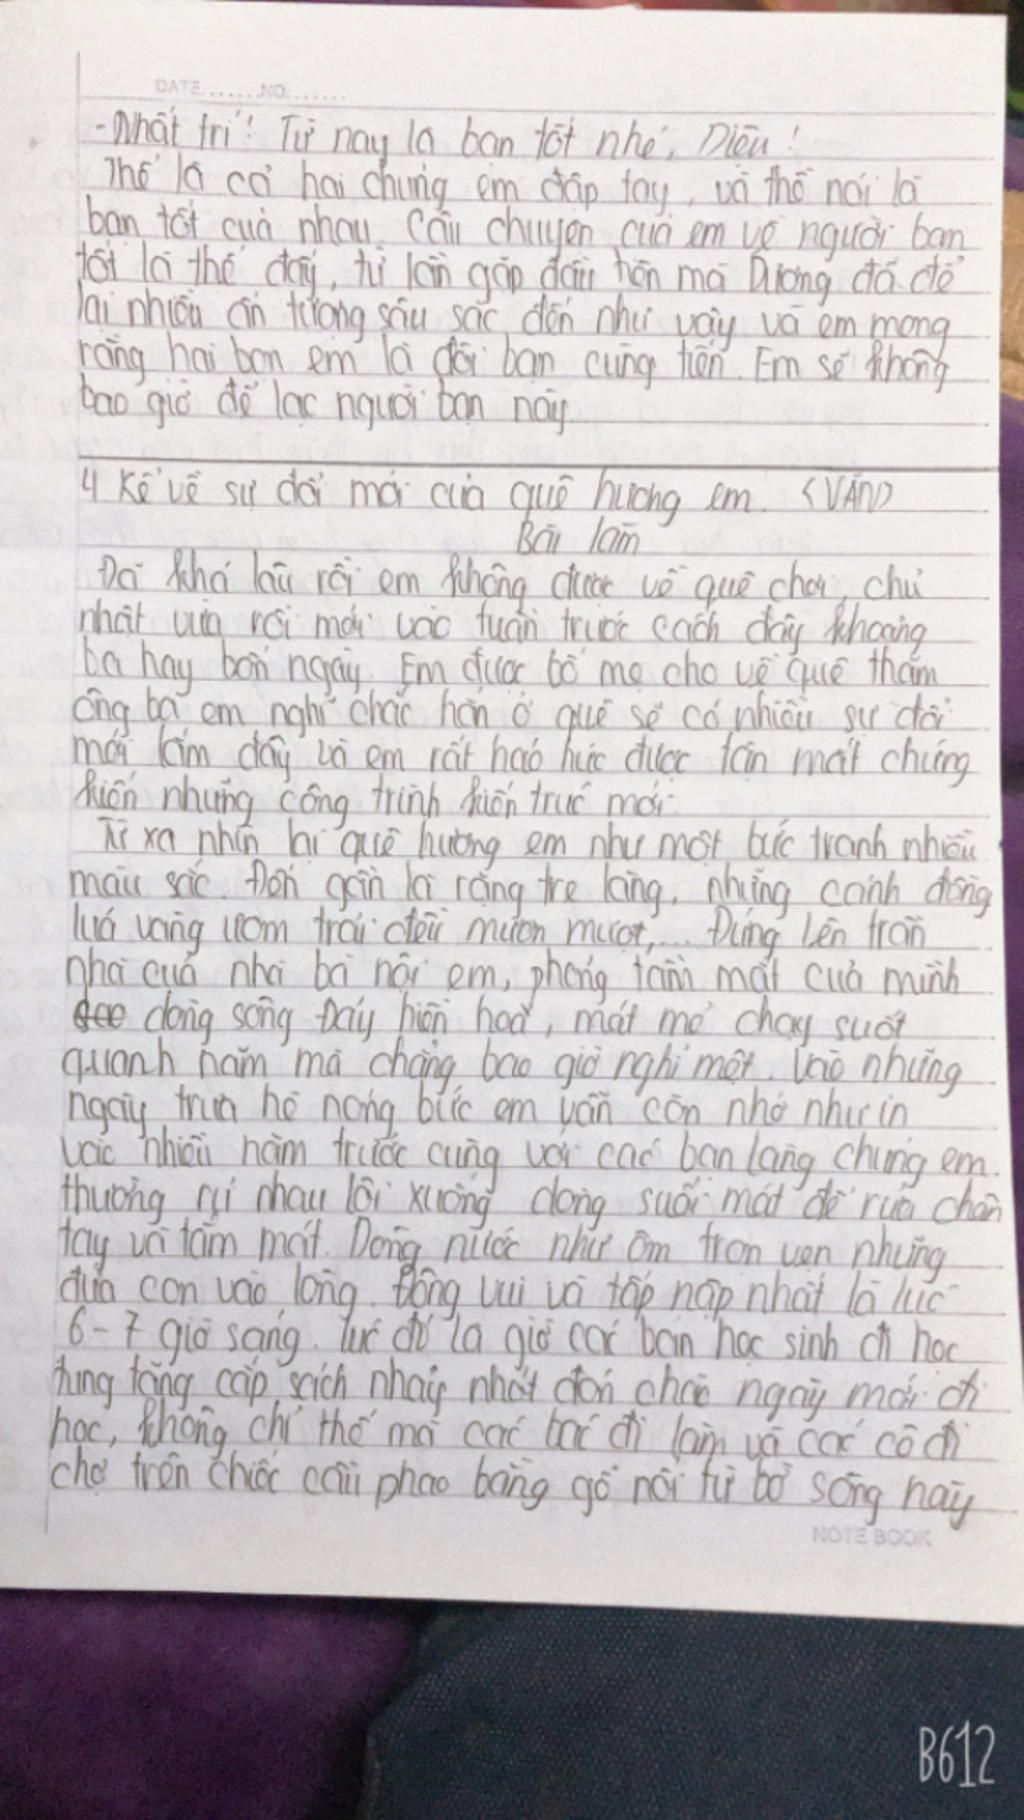 DATE.......NO.......
- Nhất trí! Từ nay là bạn tốt nhé, Diệu!
Thế là cả hai chúng em đập tay, và thế nói là
bạn tốt của nhau. Câu chuyện của em về người bạn
tốt là thế đấy, từ lần gặp đầu tiên mà Dương đã để
lại nhiều ấn tượng sâu sắc đến như vậy và em mong
rằng hai bạn em là đôi bạn cùng tiến. Em sẽ không
bao giờ để lạc người bạn này
4 Kể về sự đổi mới của quê hương em. <VĂN>
Bài làm
Đã khá lâu rồi em không được về quê chơi, chủ
nhật vừa rồi mới vào tuần trước cách đây khoảng
ba hay bốn ngày. Em được bố mẹ cho về quê thăm
ông bà em nghĩ chắc hẳn ở quê sẽ có nhiều sự đổi
mới lắm đây và em rất háo hức được tận mắt chứng
kiến những công trình kiến trúc mới.
Từ xa nhìn lại quê hương em như một bức tranh nhiều
màu sắc. Đến gần là rặng tre làng, những cánh đồng
lúa vàng ươm trải đều mườn mượt,... Đứng lên trần
nhà của nhà bà nội em, phóng tầm mắt của mình
dòng sông Đáy hiền hoà, mát mẻ chạy suốt
quanh năm mà chẳng bao giờ nghỉ mệt. Vào những
ngày trưa hè nóng bức em vẫn còn nhớ như in
vào nhiều năm trước cùng với các bạn làng chúng em
thường rủ nhau lội xuống dòng suối mát để rửa chân
tay và tắm mát. Dòng nước như ôm trọn vẹn những
đứa con vào lòng. Đông vui và tấp nập nhất là lúc
6-7 giờ sáng. lúc đó là giờ các bạn học sinh đi học
tung tăng cặp sách nhảy nhót đón chào ngày mới đi
học, không chỉ thế mà các bác đi làm và các cô đi
chợ trên chiếc cầu phao bằng gỗ nối từ bờ sông này
NOTE BOOK
B612